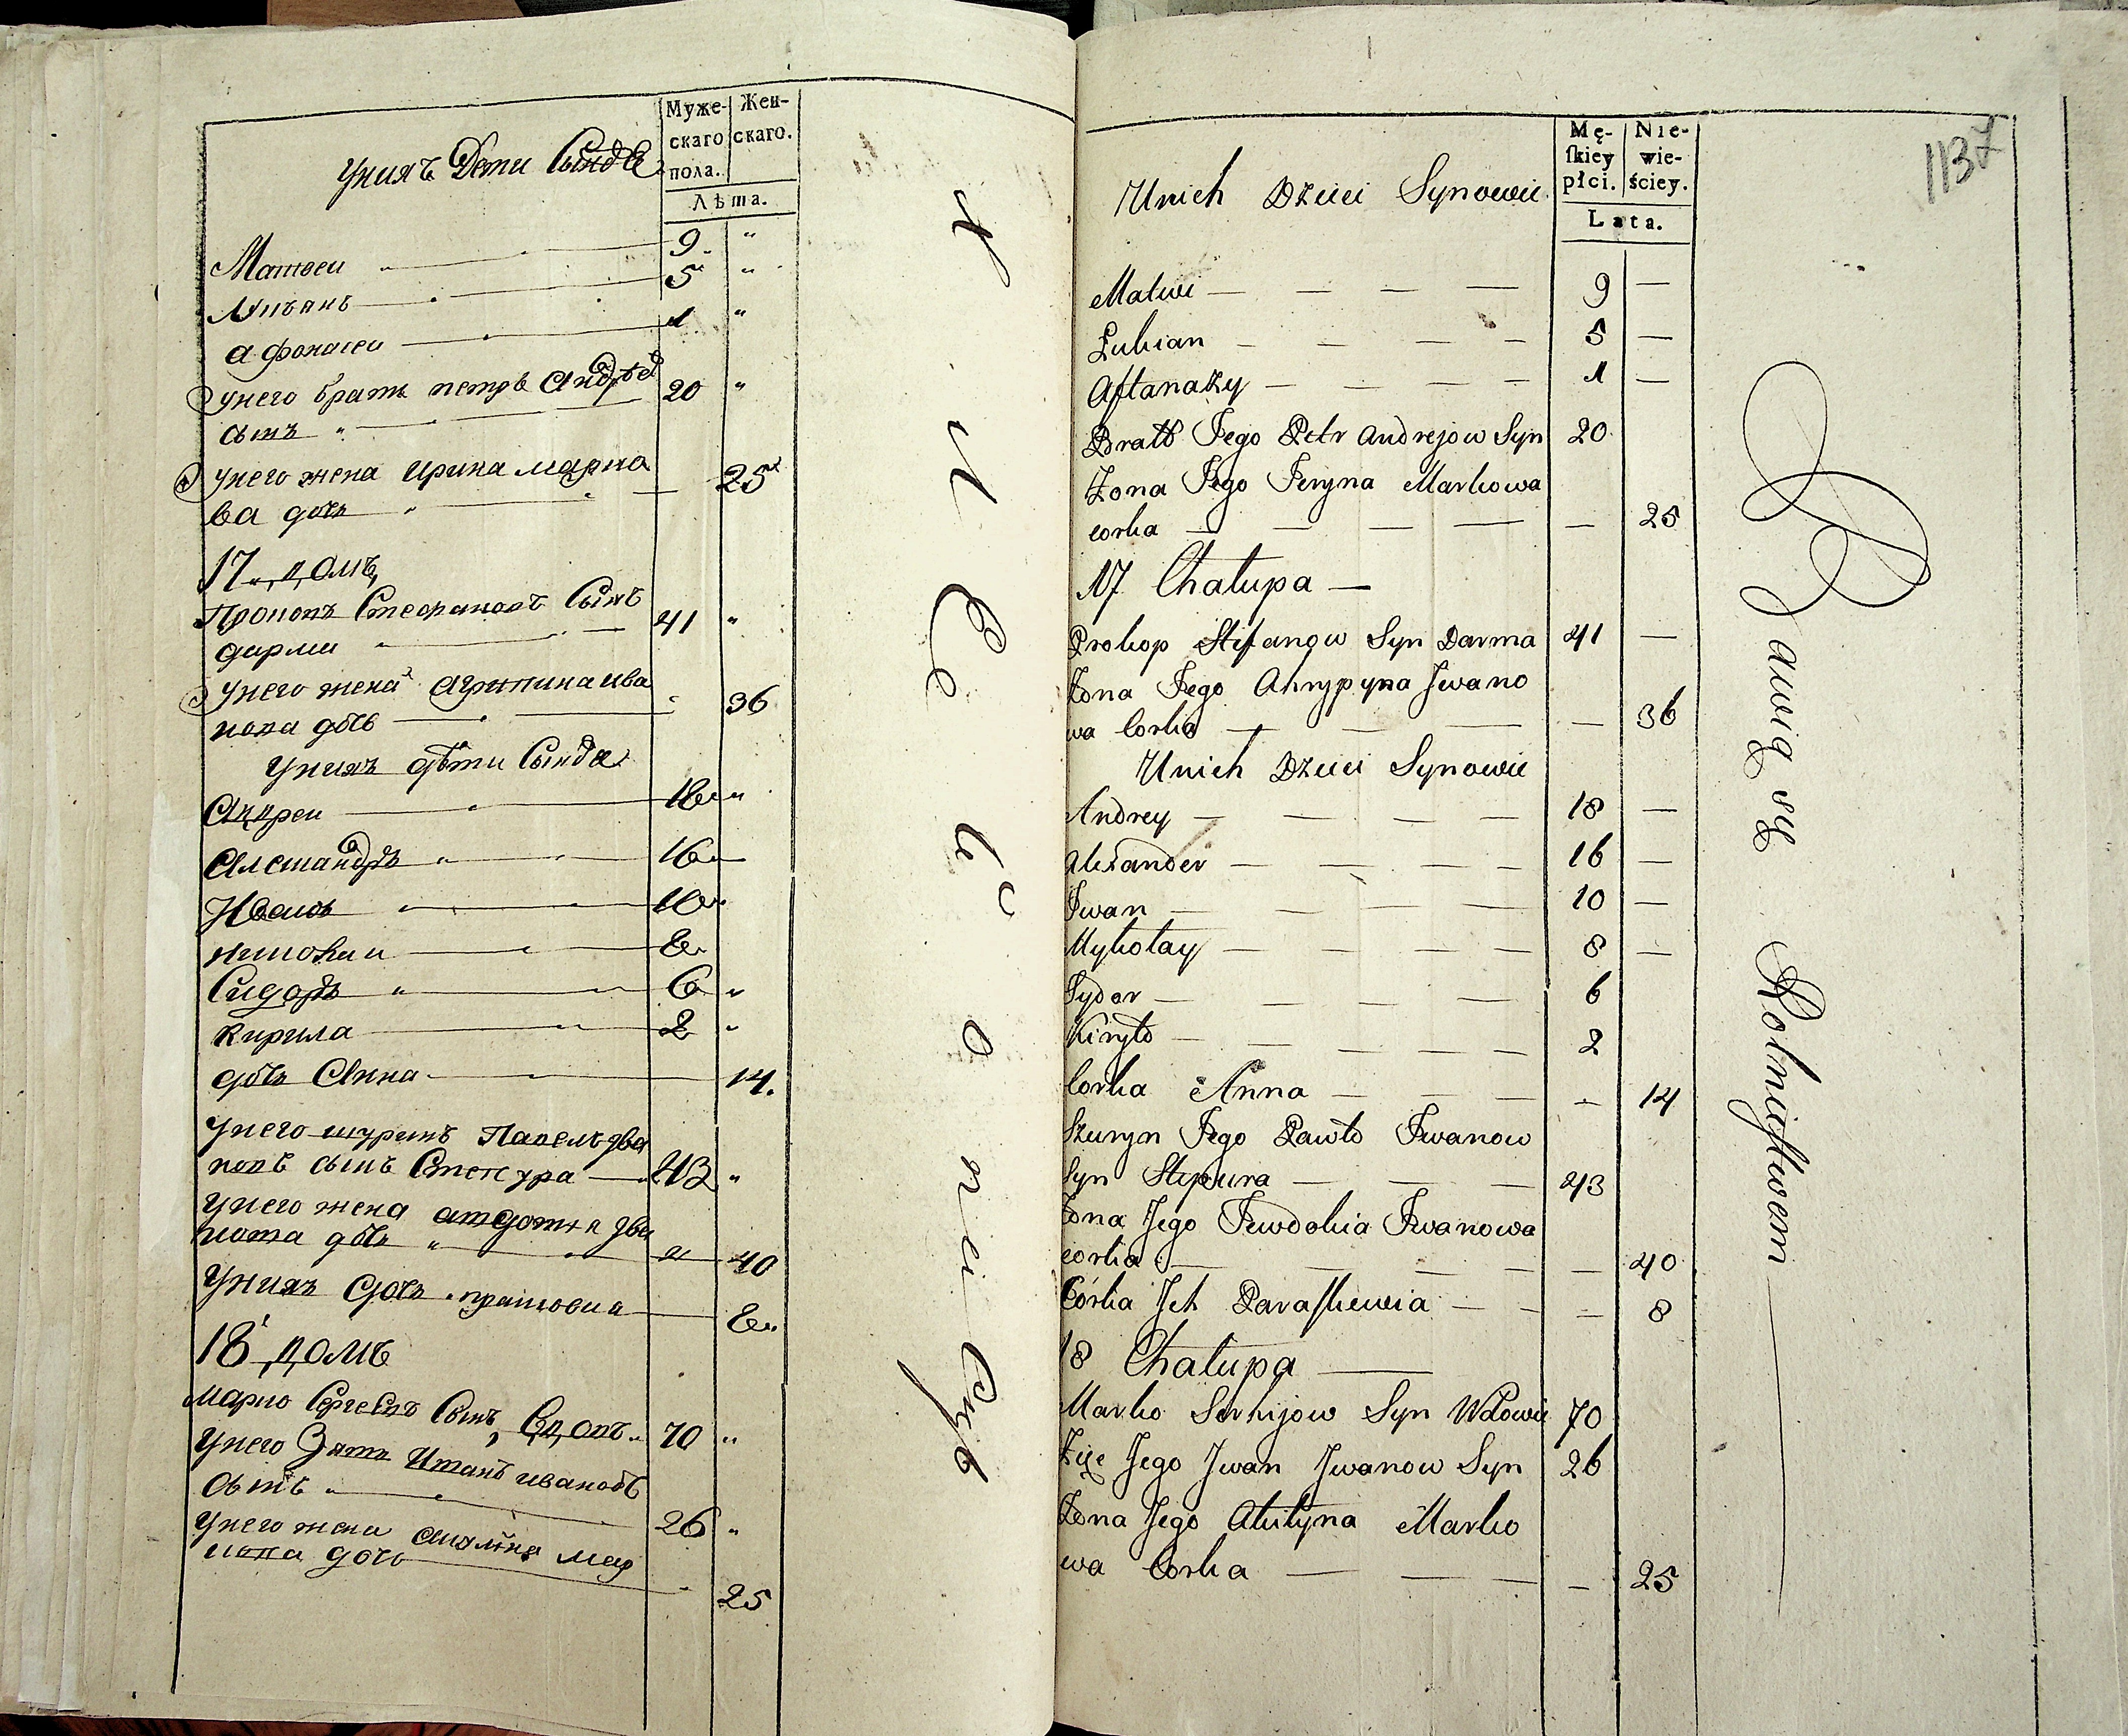 Муже-
скаго
пола.
Жен-
скаго.
Лѣта.
унихъ Дети Сынове
Матвеи 9 "
Лукъянъ 5 "
афонасеи 1 "
унего братъ петръ Андрѣев
сынъ " 20 "
унего жена ирина марко
ва дочь 25
17 " домъ
Прокопъ Стефановъ Сынъ
дарма 41 "
унего жена агрипина ива
нова дочь 36
унихъ дѣти Сынове
Андреи 18 "
Александръ 16
Иванъ 10 "
николаи 8
Сидоръ " 6 "
Кирила 2 "
дочь Анна 14.
унего шуринъ Павелъ Ива
новъ сынъ Степура 43 "
унего жена авдотия Ива
нова дочь " 40
унихъ дочь прасковия 8 "
18 домъ
марко Сергеевъ Сынъ, вдовъ " 70 "
унего Зять Иванъ ивановъ
сынъ " 26 "
унего жена акилина мар
кова дочь 25
Mę-
ſkiey
płci.
Nie-
wie-
ściey.
Lata.
1137
Unich Dzieci Synowie
Matwi — — — — 9 —
Łukian — — — — 5 —
Aftanazy — — — — 1 —
Bratt Jego Petr Andrejow Syn 20
Żona Jego Jeryna Markowa
corka — — — — — 25
17 Chałupa —
Prokop Stefanow Syn Darma 41 —
Żona Jego Ahrypyna Jwano
wa Corka — — — — 36
Unich Dzieci Synowie
Andrey — — — — 18 —
Alexander — — — — 16 —
Jwan — — — — 10 —
Mykołay — — — — 8 —
Sydor — — — — 6
Kiryło — — — — — 2
Corka Anna — — — — 14
Szuryn Jego Pawło Jwanow
Syn Stepura — — — 43
Żona Jego Jewdokia Jwanowa
corka — — — — — 40
Córka Jch Paraſkewia — — — 8
18 Chałupa —
Marko Serhijow Syn Wdowiec 70
Zięć Jego Jwan Jwanow Syn 26
Żona Jego Akilyna Marko
wa Corka — — — — 25
Bawią się Rolnictwem